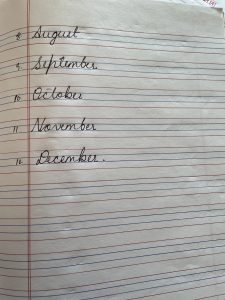 8. August
9. September.
10. October
11. November
12. December.